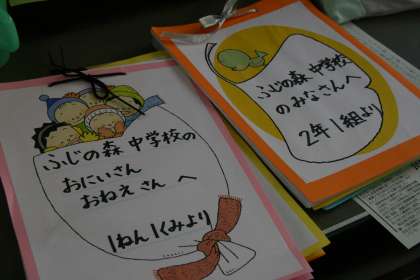 ふじの森 中学校の
おにいさん
おねえさん へ
1ねん 1くみより
ふじの森 中学校
のみなさんへ
2年1組より